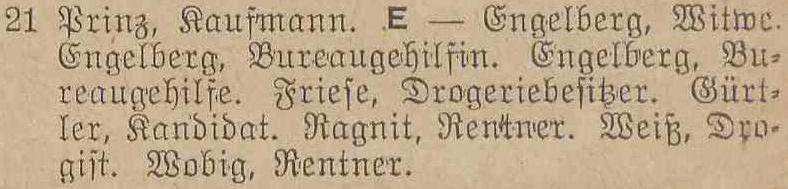 21 Prinz, Kaufmann. E — Engelberg, Witwe.
Engelberg, Bureaugehilfin. Engelberg, Bu-
reaugehilfe. Friese, Drogeriebesitzer. Gürt-
ler, Kandidat. Ragnit, Rentner. Weiß, Dro-
gist. Wobig, Rentner.